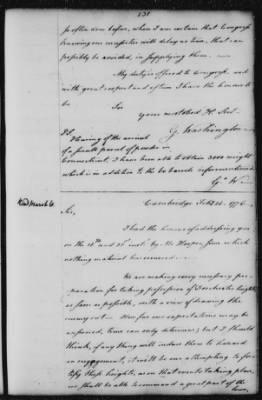 131
so often done before, when I am certain that Congress
having one messenger will delay no time, that can
possibly be avoided, in supplying them.
My duty is offered to Congress, and
with great respect and esteem I have the honor to
be
Sir
Your most Obed. H. Serv.
G. Washington
P.S.
Hearing of the arrival
of a small parcel of powder in
Connecticut, I have been able to obtain 3000 weight
which is in addition to the 60 barrels
G. W.
Read March 6.
Cambridge Feb. 26. 1776
Sir,
I had the honor of addressing you
on the 18th and 21st inst. by Mr. Hooper since which
nothing material has occurred.
We are making every necessary pre-
paration for taking possession of Dorchester heights
as soon as possible, with a view of drawing the
enemy out. How far our expectations may be
answered, time can only determine; but I should
think, if any thing will induce them to hazard
an engagement, it will be our attempting to for-
tify those heights, as on that event's taking place,
we shall be able to command a great part of the
town,